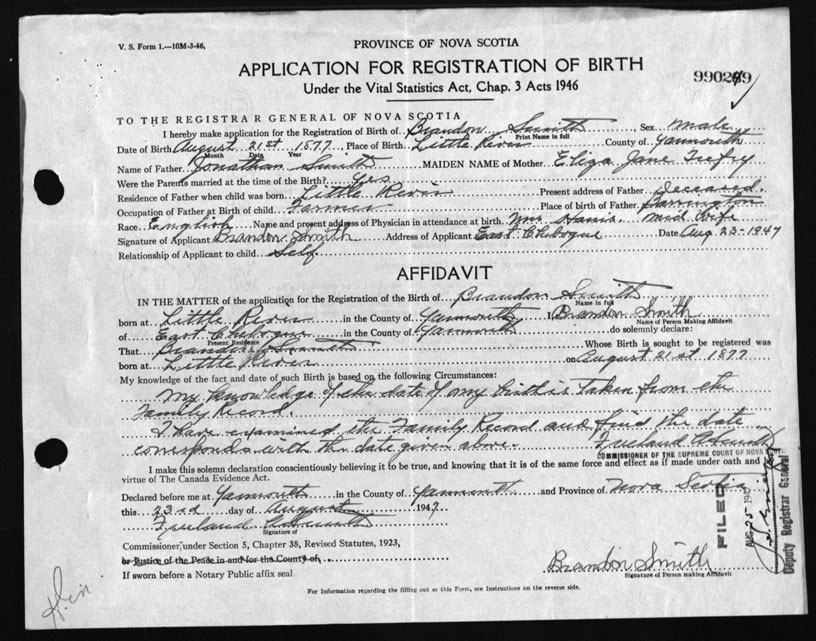 V. S. Form 1.—10M-3-46,
PROVINCE OF NOVA SCOTIA
APPLICATION FOR REGISTRATION OF BIRTH
Under the Vital Statistics Act, Chap. 3 Acts 1946
TO THE REGISTRAR GENERAL OF NOVA SCOTIA
I hereby make application for the Registration of Birth of Brandon Smith, Sex male
Print Name in full
Date of Birth August 21st 1877 Place of Birth Little River County of Yarmouth
Month Date Year
Name of Father Jonathan Smith MAIDEN NAME of Mother Eliza Jane
Were the Parents married at the time of the Birth? Yes
Residence of Father when child was born Little River Present address of Father deceased.
Occupation of Father at Birth of child Farmer Place of birth of Father Barrington
Race English Name and present address of Physician in attendance at birth Mrs Mid Wife
Signature of Applicant Brandon Smith Address of Applicant East Chebogue Date Aug 23-1947
Relationship of Applicant to child Self
AFFIDAVIT
IN THE MATTER of the application for the Registration of the Birth of Brandon Smith
Name in full
born at Little River in the County of Yarmouth I, Brandon Smith
Name of Person Making Affidavit
of East Chebogue in the County of Yarmouth do solemnly declare:
Present Residence
That Brandon Smith Whose Birth is sought to be registered was
born at Little River on August 21st 1877
My knowledge of the fact and date of such Birth is based on the following Circumstances:
My knowledge of the date of my birth is taken from the
Family Record.
I have examined the Family Record and find the date
corresponds with the date given above. Freeland
COMMISSIONER OF THE SUPREME COURT OF NOVA
I make this solemn declaration conscientiously believing it to be true, and knowing that it is of the same force and effect as if made under oath and
virtue of The Canada Evidence Act.
Declared before me at Yarmouth in the County of Yarmouth and Province of Nova Scotia
this 23rd day of August 1947
Freeland
Signature of
Commissioner under Section 5, Chapter 38, Revised Statutes, 1923,
or Justice of the Peace in and for the County of
If sworn before a Notary Public affix seal
Brandon Smith
Signature of Person making Affidavit
For Information regarding the filling out of this Form, see Instructions on the reverse side.
FILED
AUG 25 1947
Deputy Registrar General